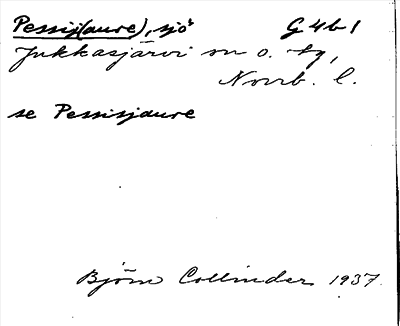 Pessij(aure), sjö G 4 b 1
Jukkasjärvi sn o. tg,
Norrb. l.
se Pessisjaure
Björn Collinder 1937.